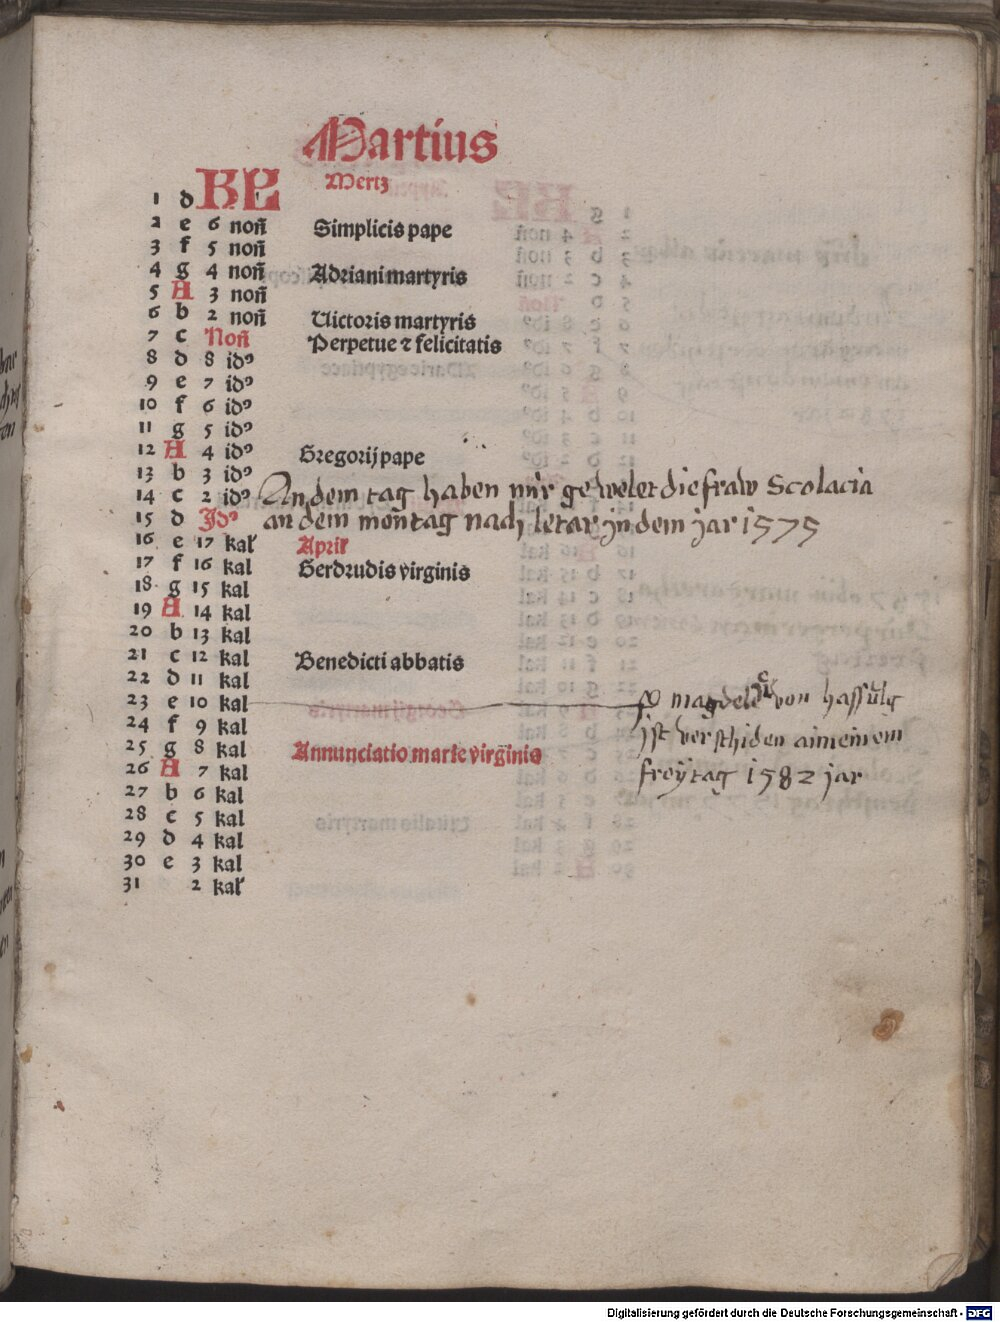 Martius
Mertz
1 d KL
2 e 6 non̄ Simplicis pape
3 f 5 non̄
4 g 4 non̄ Adriani martyris
5 A 3 non̄
6 b 2 non̄ Uictoris martyris
7 c Non̄ Perpetue ⁊ felicitatis
8 d 8 idꝰ
9 e 7 idꝰ
10 f 6 idꝰ
11 g 5 idꝰ
12 A 4 idꝰ Gregorij pape
13 b 3 idꝰ
14 c 2 idꝰ An dem tag haben mir gewelet die fraw Scolacia
15 d Idꝰ an dem montag nach letar jn dem jar 1575
16 e 17 kal' April'
17 f 16 kal Gerdrudis virginis
18 g 15 kal
19 A 14 kal
20 b 13 kal
21 c 12 kal Benedicti abbatis
22 d 11 kal
23 e 10 kal magdele von
24 f 9 kal ist verschiden an einem
25 g 8 kal Annunciatio marie virginis
26 A 7 kal freÿtag 1582 jar
27 b 6 kal
28 c 5 kal
29 d 4 kal
30 e 3 kal
31 2 kal'
Digitalisierung gefördert durch die Deutsche Forschungsgemeinschaft - DFG